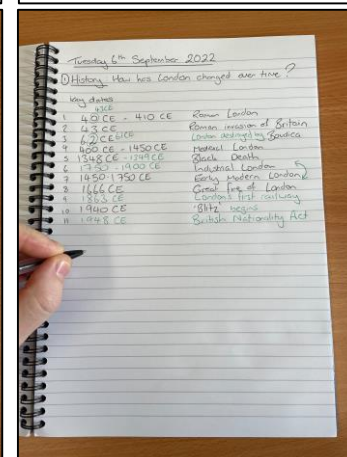 Tuesday 6th September 2022
① History How has London changed over time?
key dates
43CE
1 40 CE - 410 CE Roman London
2 43 CE Roman invasion of Britain
3 62 CE 61CE London destroyed by Boudica
4 400 CE - 1450 CE Medieval London
5 1348 CE - 1349 CE Black Death
6 1750 - 1900 CE Industrial London
7 1450-1750 CE Early Modern London
8 1666 CE Great fire of London
9 1863 CE London's first railway
10 1940 CE 'Blitz' begins
11 1948 CE British Nationality Act